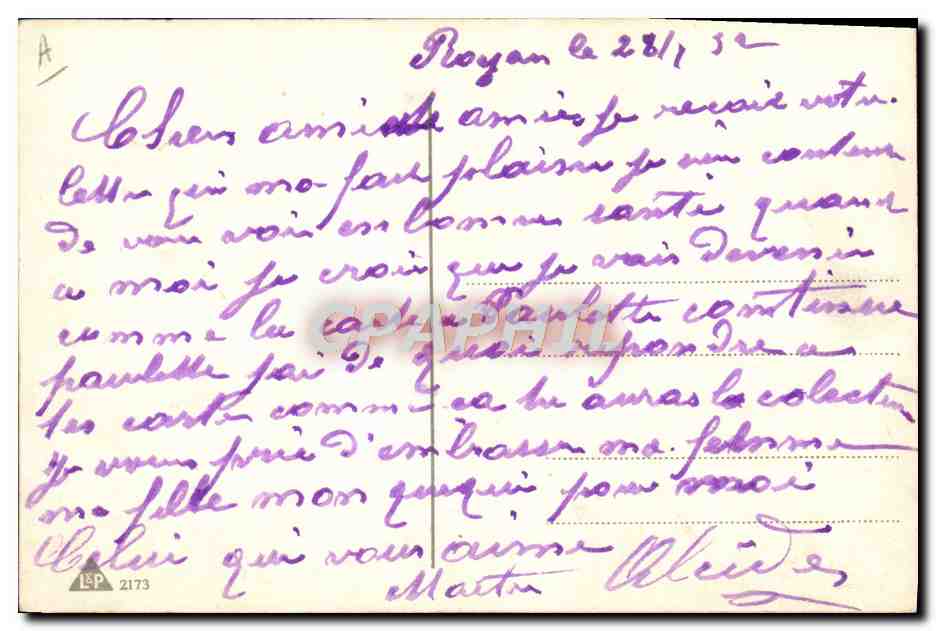 A
Royan le 28/1 32
Chers ami amies je recois votre
lettre qui ma fait plaisir je suis content
de vous voir en bonne santé quand
a moi je crois que je vais devenir
comme la Paulette continue
paulette jai de quoi repondre a
tes carte comme ca tu auras la colection
je vous prie d'embrasser ma femme
ma fille mon quiqui pour moi
Celui qui vous aime
Alcide
L&P 2173
CPAPHIL